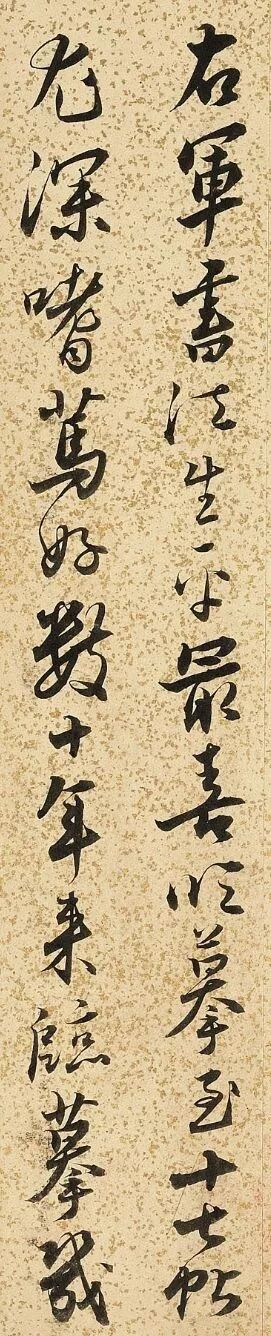 右軍書法生平最喜臨摹至十七帖
尤深嗜篤好數十年來臨摹幾